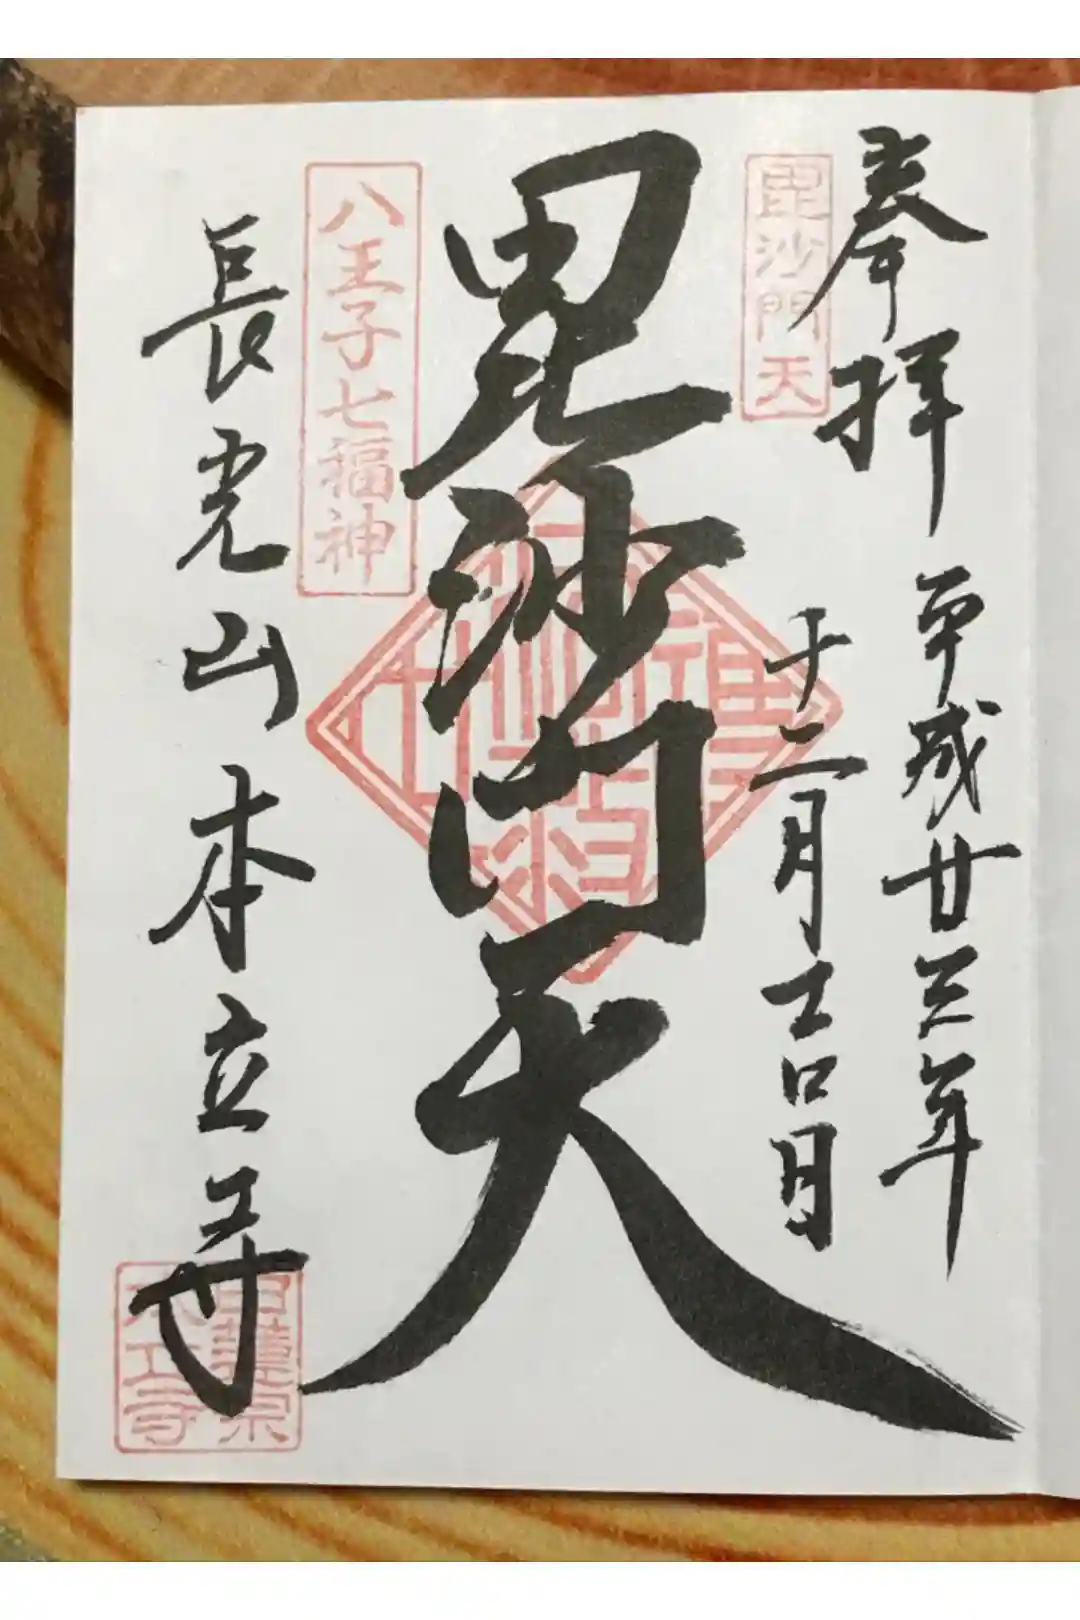 奉拝
平成廿三年
十二月吉日
毘沙門天
毘沙門天
八王子七福神
長光山本立寺
日蓮宗
本立寺